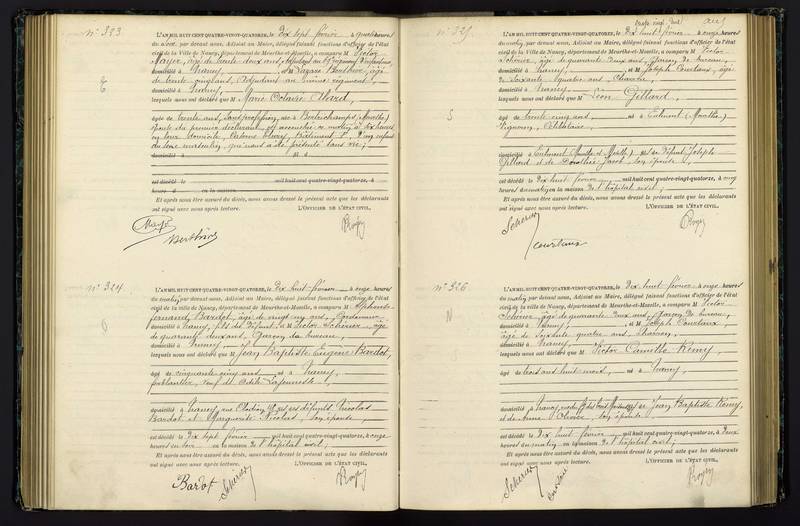 N° 323
L'AN MIL HUIT CENT QUATRE-VINGT-QUATORZE, le Dix sept février à quatre heures
du soir, par devant nous, Adjoint au Maire, délégué faisant fonctions d'officier de l'état
civil de la Ville de Nancy, département de Meurthe-et-Moselle, a comparu M Victor
Mayer, âgé de trente deux ans,
domicilié à Nancy, et M Berthier, âgé
de trente ans, Adjudant au même régiment,
domicilié à Nancy,
lesquels nous ont déclaré que M Marie Octavie
âgée de trente ans, sans profession, née à Bertrichamps (Meurthe)
du premier déclarant, est accouchée ce matin à dix heures
en leur domicile, d'un enfant
du sexe masculin, qui nous a été présenté sans vie;
domicilié à
est décédé le mil huit cent quatre-vingt-quatorze, à
heures d en la maison
Et après nous être assuré du décès, nous avons dressé le présent acte que les déclarants
ont signé avec nous après lecture. L'OFFICIER DE L'ÉTAT CIVIL,
Mayer
Berthier
N° 324
L'AN MIL HUIT CENT QUATRE-VINGT-QUATORZE, le Dix huit février à onze heures
du matin, par devant nous, Adjoint au Maire, délégué faisant fonctions d'officier de l'état
civil de la Ville de Nancy, département de Meurthe-et-Moselle, a comparu M Alphonse
Fernand Bardot, âgé de vingt ans,
domicilié à Nancy, fils du défunt et M Victor Scherier, âgé
de quarante deux ans, Garçon de bureau,
domicilié à Nancy,
lesquels nous ont déclaré que M Jean Baptiste Eugène Bardot,
âgé de cinquante cinq ans né à Nancy,
ferblantier, veuf de
domicilié à Nancy, rue fils des défunts Nicolas
Bardot et Marguerite Nicolas, son épouse
est décédé le Dix sept février mil huit cent quatre-vingt-quatorze, à onze
heures du soir en la maison de l'hôpital civil;
Et après nous être assuré du décès, nous avons dressé le présent acte que les déclarants
ont signé avec nous après lecture. L'OFFICIER DE L'ÉTAT CIVIL,
Bardot Scherier
N° 325
L'AN MIL HUIT CENT QUATRE-VINGT-QUATORZE, le Dix huit février à onze heures
du matin, par devant nous, Adjoint au Maire, délégué faisant fonctions d'officier de l'état
civil de la Ville de Nancy, département de Meurthe-et-Moselle, a comparu M Victor
Scherier, âgé de quarante deux ans, Garçon de bureau,
domicilié à Nancy, et M Joseph Courtaux, âgé
de soixante quatre ans,
domicilié à Nancy
lesquels nous ont déclaré que M Léon Gillard,
âgé de trente cinq ans, né à Eulmont (Meurthe)
Vigneron, Célibataire
domicilié à Eulmont (Meurthe et Moselle) fils de défunt Joseph
Gillard et de Dorothée Jacob son épouse
est décédé le Dix huit février mil huit cent quatre-vingt-quatorze, à cinq
heures du matin en la maison de l'hôpital civil;
Et après nous être assuré du décès, nous avons dressé le présent acte que les déclarants
ont signé avec nous après lecture. L'OFFICIER DE L'ÉTAT CIVIL,
Scherier
Courtaux
N° 326
L'AN MIL HUIT CENT QUATRE-VINGT-QUATORZE, le Dix huit février à onze heures
du matin, par devant nous, Adjoint au Maire, délégué faisant fonctions d'officier de l'état
civil de la Ville de Nancy, département de Meurthe-et-Moselle, a comparu M Victor
Scherier, âgé de quarante deux ans, Garçon de bureau,
domicilié à Nancy, et M Joseph Courtaux,
âgé de soixante quatre ans,
domicilié à Nancy
lesquels nous ont déclaré que M Victor Camille Rémy,
âgé de trois ans huit mois, né à Nancy,
domicilié à Nancy, fils de Jean Baptiste Rémy
et de son épouse
est décédé le Dix huit février mil huit cent quatre-vingt-quatorze, à deux
heures du matin en la maison de l'hôpital civil;
Et après nous être assuré du décès, nous avons dressé le présent acte que les déclarants
ont signé avec nous après lecture. L'OFFICIER DE L'ÉTAT CIVIL,
Scherier Courtaux